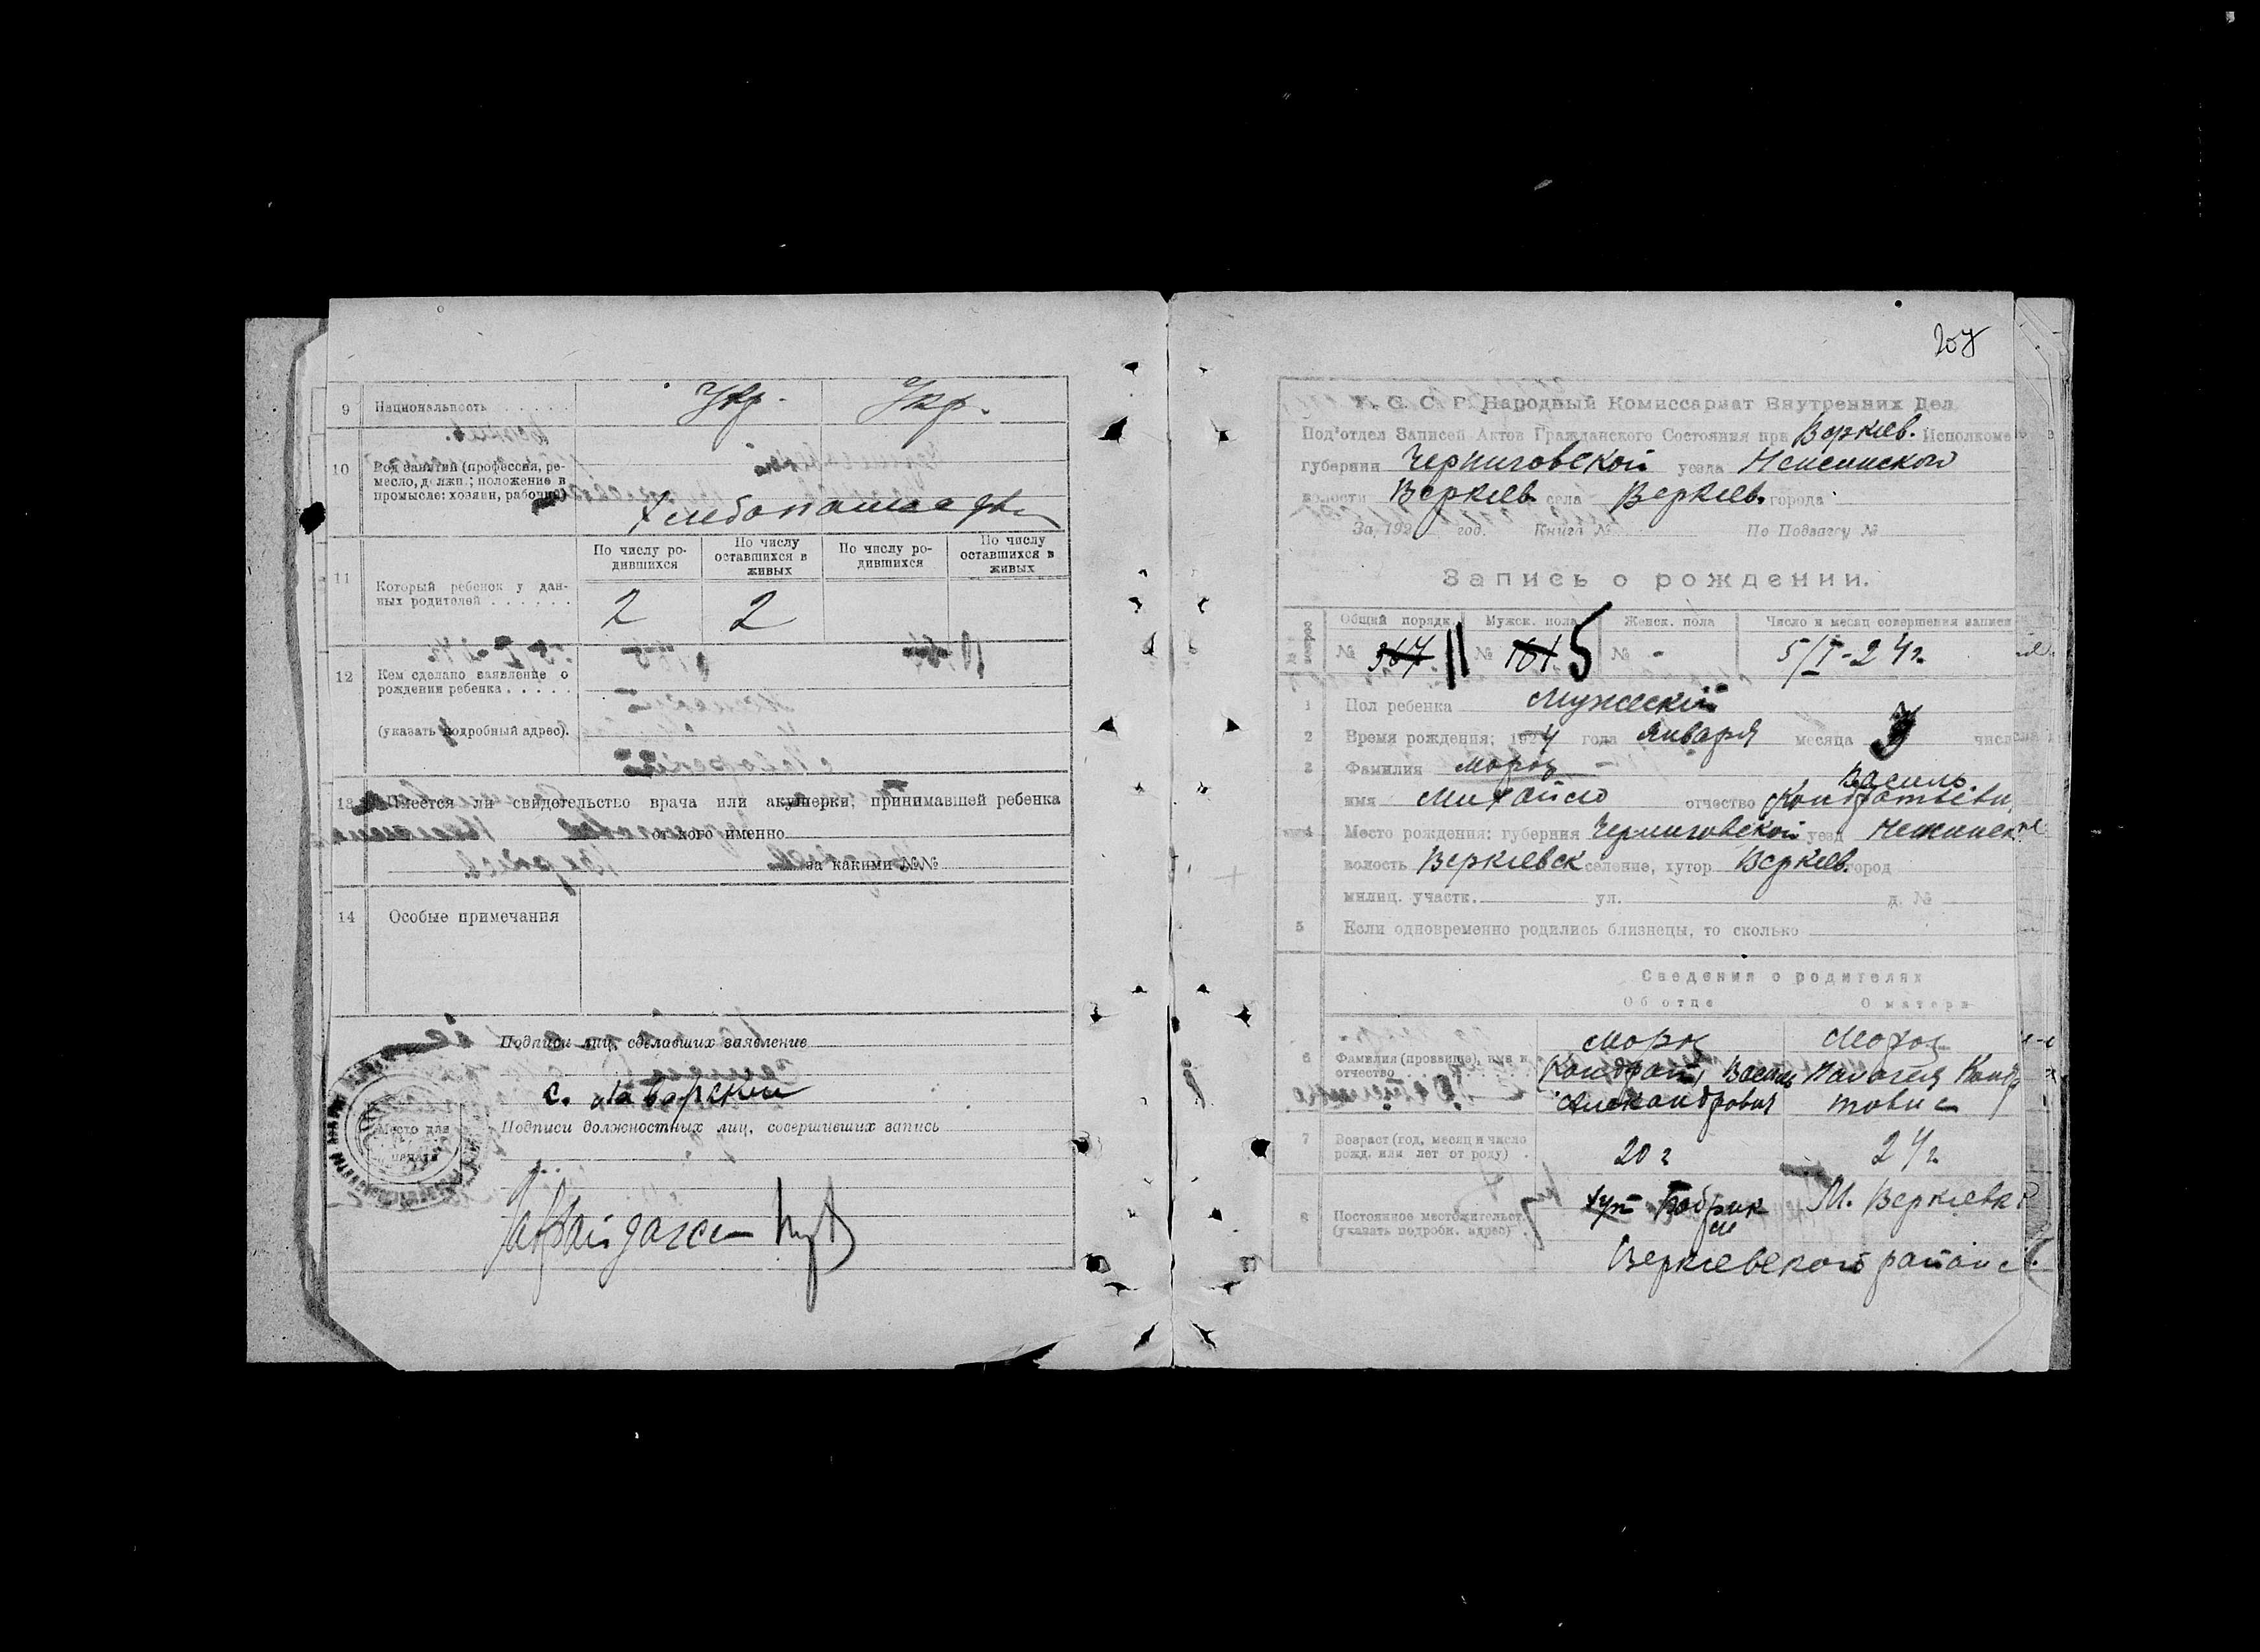 9 Национальность Укр. Укр.
10 Род занятий (профессия, ре-
месло, должн.; положение в
промысле: хозяин, рабочий)
Хлебопашеф
11 Который ребенок у дан-
ных родителей
По числу ро-
дившихся
По числу
оставшихся в
живых
По числу ро-
дившихся
По числу
оставшихся в
живых
2 2
12 Кем сделано заявление о
рождении ребенка
(указать подробный адрес).
13 Имеется ли свидетельство врача или акушерки, принимавшей ребенка
от кого именно
за какими №№
14 Особые примечания
Подписи лиц, сделавших заявление
с. Лаварский
Подписи должностных лиц, совершивших запись
Место для
печати
207
У. С. С. Р. Народный Комиссариат Внутренних Дел
Под'отдел Записей Актов Гражданского Состояния при Веркиев. Исполкоме
губернии Черниговской уезда Неженского
волости Веркиев. села Веркиев. города
За 192 год. Книга № По Подзагсу №
Запись о рождении.
Общий порядк. Мужск. пола Женск. пола Число и месяц совершения записи
№ 367 11 № 161 5 № - 5/I-24г.
1 Пол ребенка Мужеский
2 Время рождения: 1924 года Января месяца 3 числа
3 Фамилия Мороз
Василь.
имя Михайло отчество Кондратьеви
4 Место рождения: губерния Черниговской уезд Неженск
волость Веркиевск селение, хутор Веркиев. город
милиц. участк. ул. д. №
5 Если одновременно родились близнецы, то сколько
Сведения о родителях
Об отце О матери
6 Фамилия (прозвище), имя и
отчество
Мороз
Кондрат, Василь
Александрович
Мороз
Палагия Кондр
товна
7 Возраст (год, месяц и число
рожд. или лет от роду)
20 г 24г.
8 Постоянное местожительст.
(указать подробн. адрес)
хут Бобрик М. Веркиевка
Веркиевского района